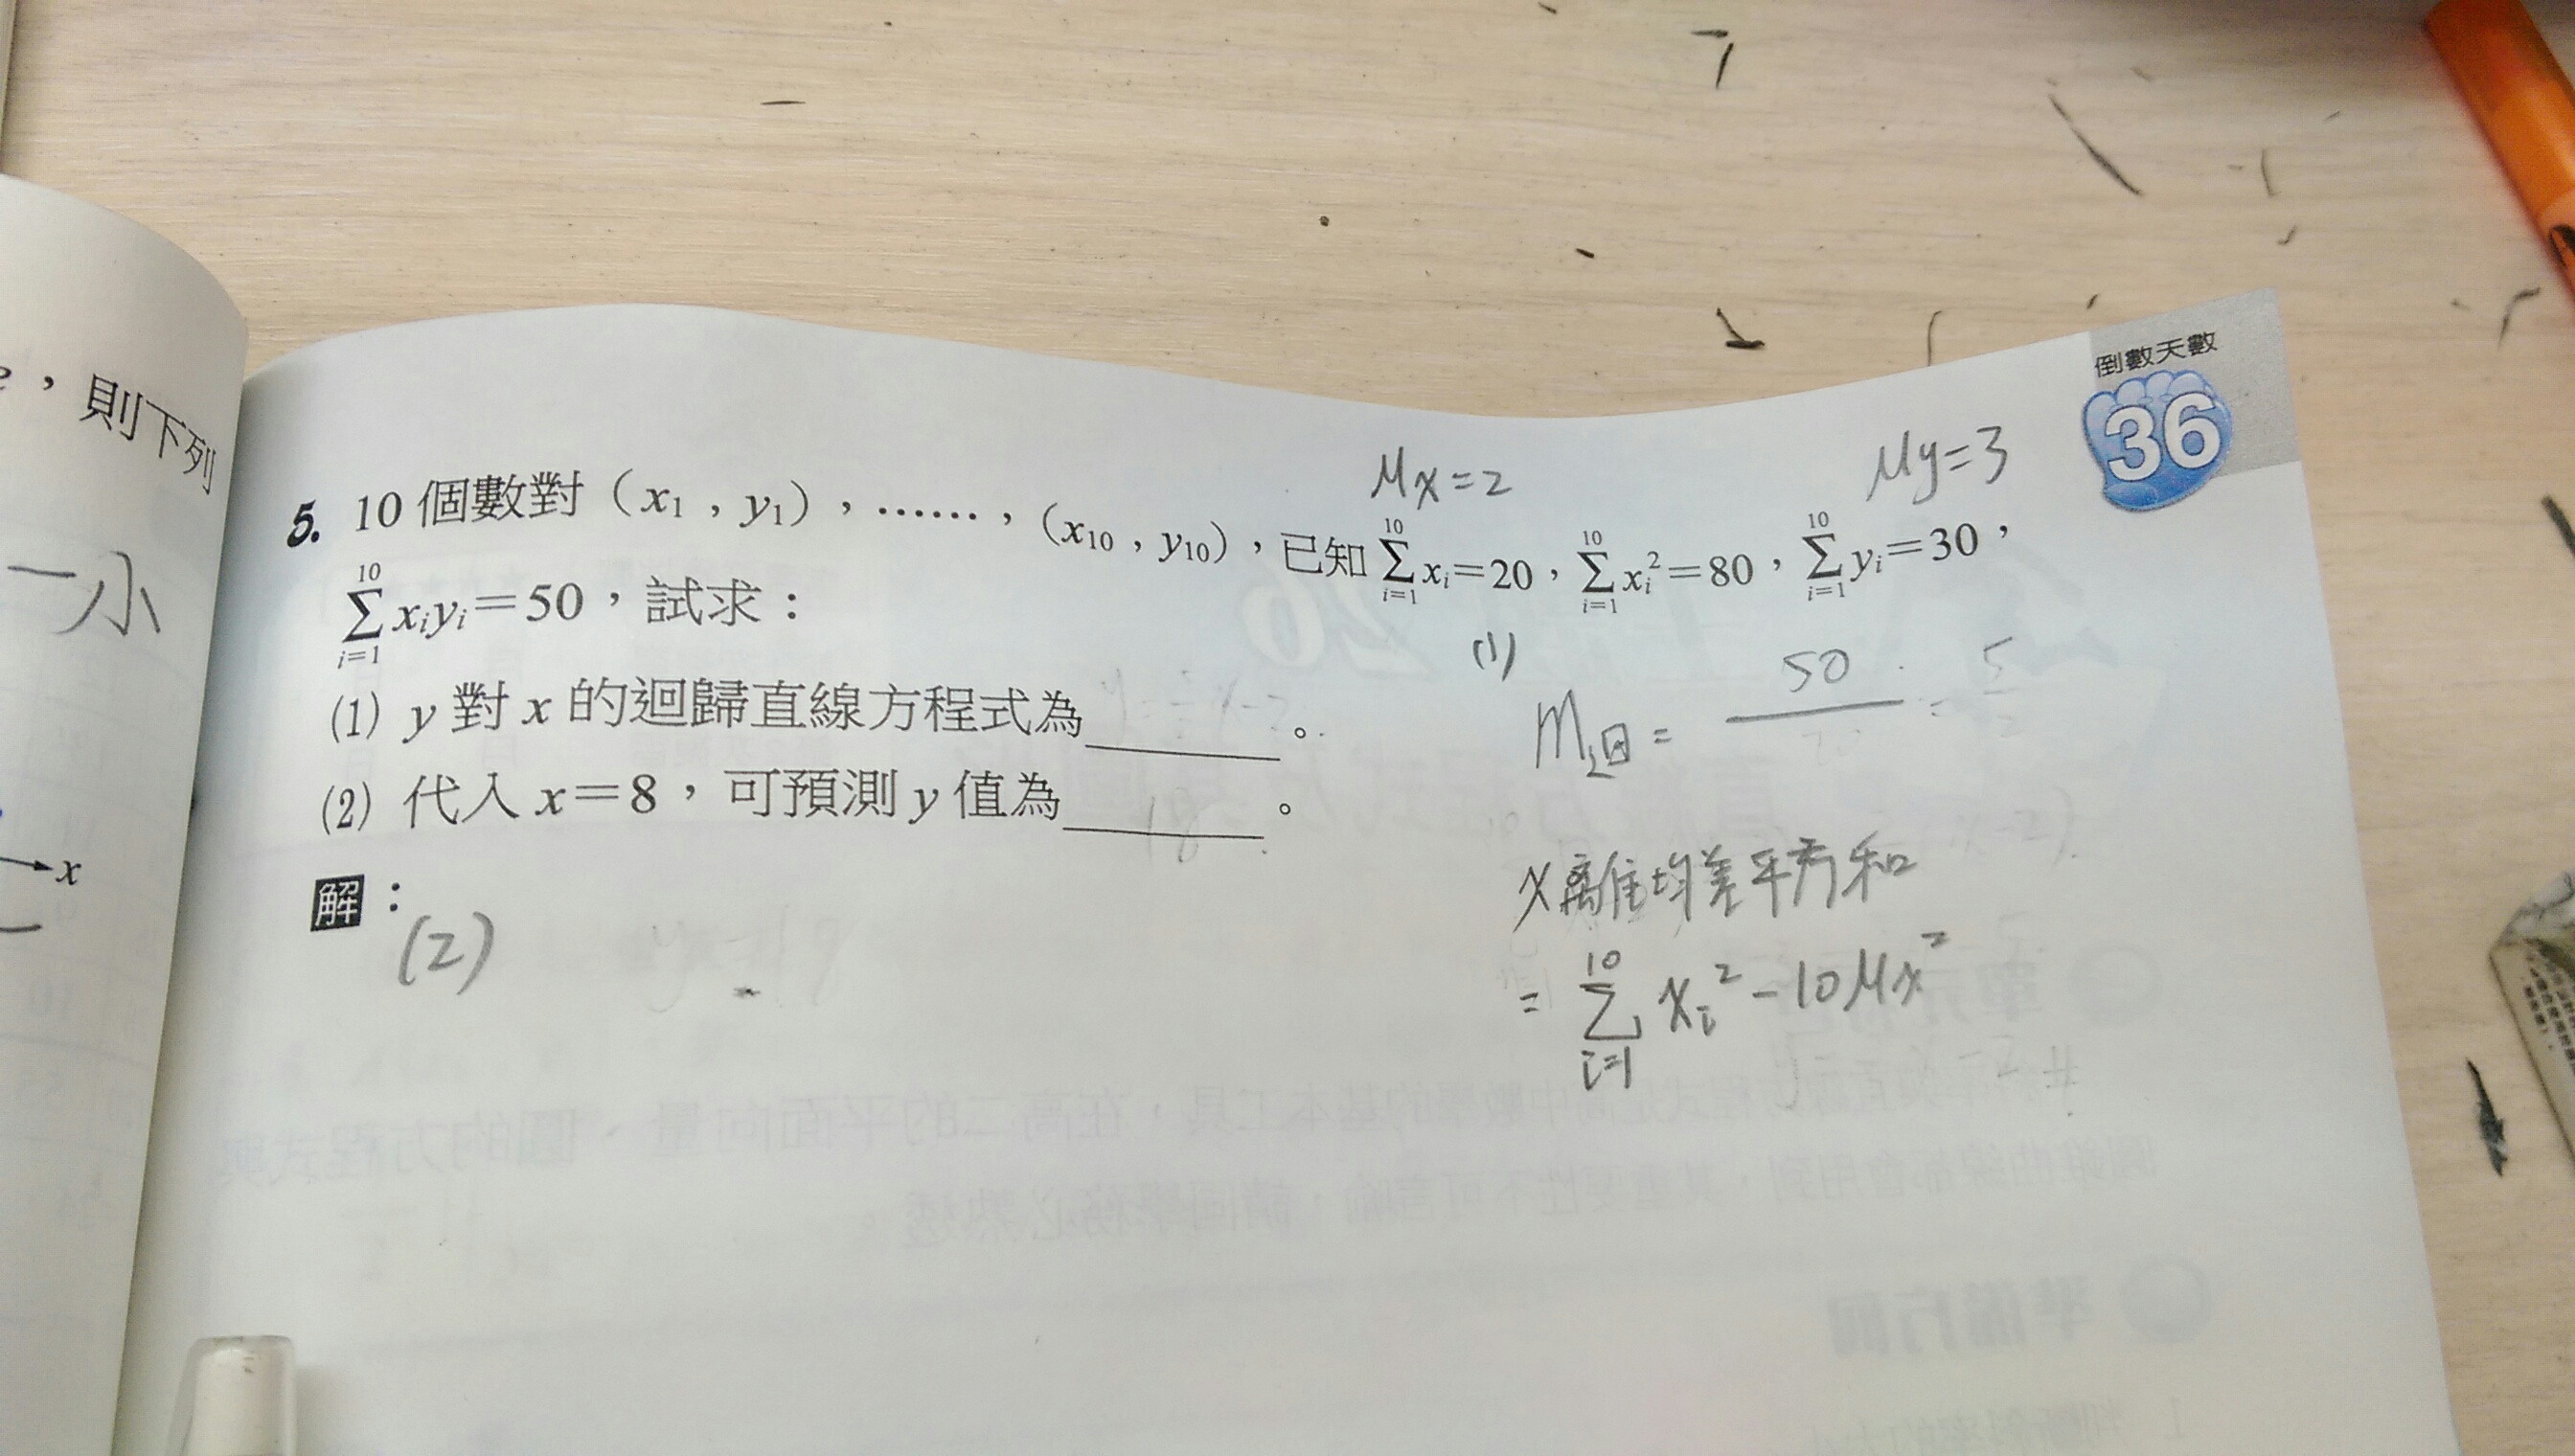 倒數天數
36
，則下列
一小
x
μx=2
μy=3
5. 10 個數對（x₁，y₁），……，（x₁₀，y₁₀），已知 \sum_{i=1}^{10} xᵢ=20，\sum_{i=1}^{10} xᵢ²=80，\sum_{i=1}^{10} yᵢ=30，
\sum_{i=1}^{10} xᵢyᵢ=50，試求：
(1) y 對 x 的迴歸直線方程式為________。
(2) 代入 x=8，可預測 y 值為 18 。
解：
(2)
(1)
m回 = 50/ = 5/2
x離均差平方和
= \sum_{i=1}^{10} xᵢ² - 10μx²